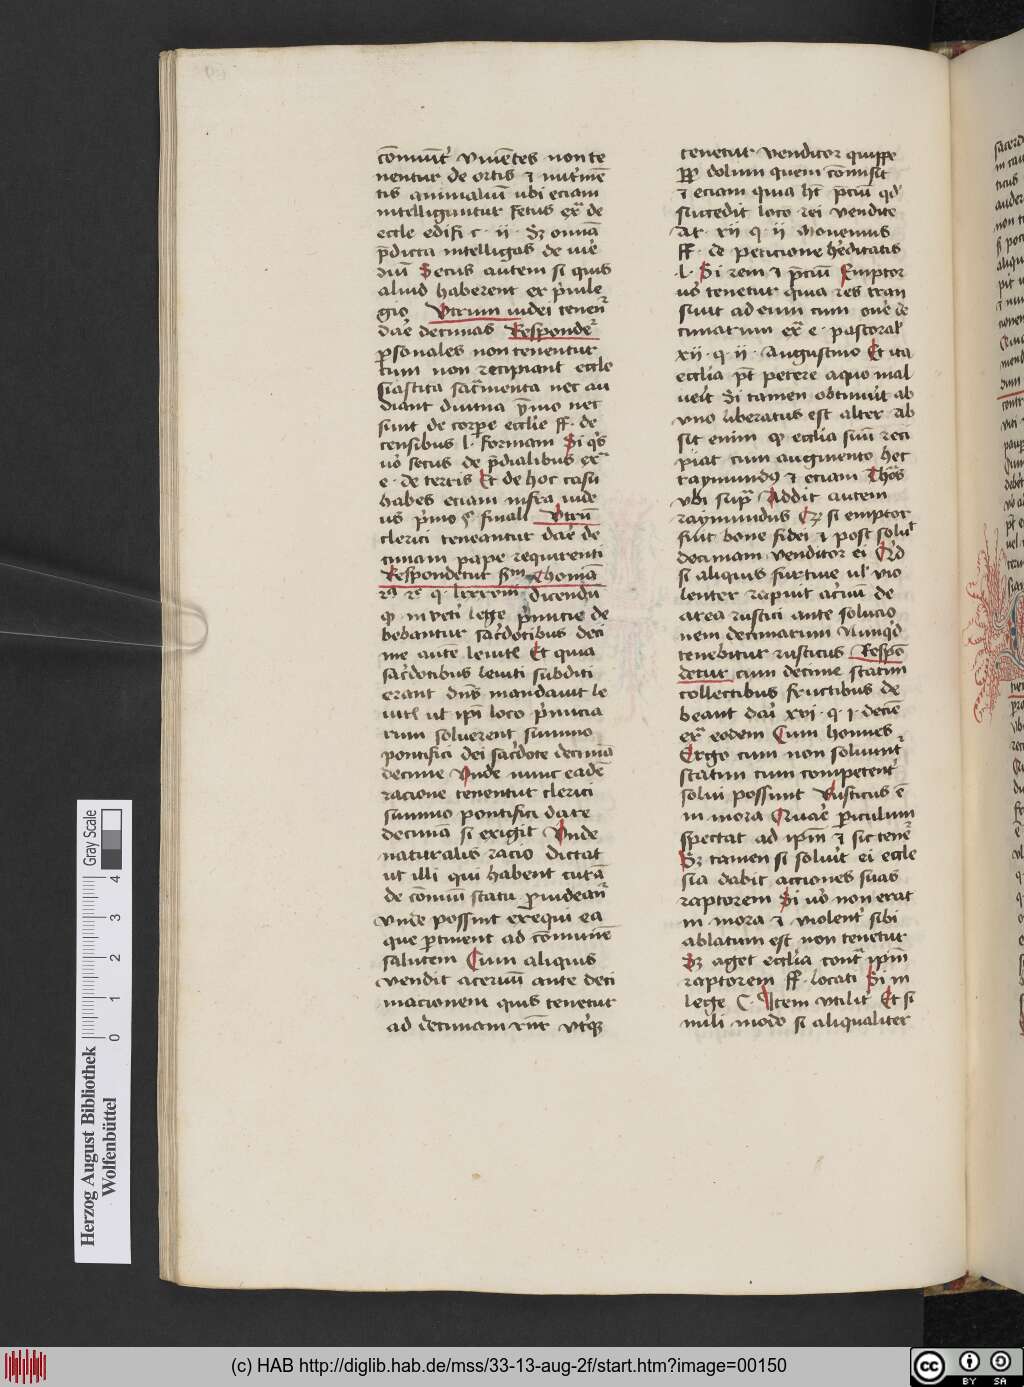 cōmuūt' viuentes non te
nentur de ortis ⁊ nutrimē
tis animaliū ubi etiam
intelliguntur fetus ex̄ de
eccle edifi c · ii · Sꝫ omnīa
p̄dicta intelligas de iure
diū Secus autem si quis
aliud haberent ex p̄uile
gio Vtrum iudei tenenr̄
dar̄e decimas Responder̄
ꝑsonales non tenentur
cum non recipiant eccle
siastica sac̄menta nec au
diant diuina ymmo nec
sunt de corpe eccl̄ie ff · de
censibus l · formam Si q̄s
uo secus de p̄dialibus ex̄
e · de terris Et de hoc casu
habes etiam infra uide
us p̄mo § finali Vtrū
clerici teneantur dar̄e de
cimam pape requirenti
Respondetur sm̄ Thomā
2ᵃ 2ᵉ q · lxxxvii dicendū
ꝙ in ueti lege p̄mitie de
bebantur sac̄dotibus deci
me autē leuitꝭ Et quia
sac̄dotibus leuiti subditi
erant dn̄s mandauit le
uitꝭ ut ip̄i loco p̄mitia
rum soluerent summo
pontifici dei sac̄dote decimā
decime Vnde nunc eadē
racione tenentur clerici
summo pontifici dare
decima si exigit Vnde
naturalis racio dictat
ut illi qui habent curā
de cōmuni statu ꝓuideanr̄
vnde possint exequi ea
que ꝑtinent ad cōmunē
salutem Cum aliquis
vendit aceruū ante deci
macionem quis tenetur
ad decimam Rn̄t vtꝫ
tenetur venditor quippe
ꝓp̄ dolum quem cōmisit
⁊ etiam quia h̄t p̄ciū qd̄
succedit loco rei vendite
at · xii q · ii Monemus
ff · de peticione h̄editatis
· l · Si rem ⁊ p̄ciū Emptor
uō tenetur quia res tran
siuit ad eum cum ouēre de
cimarum ex̄ e · pastoral̄
xii · q · ii · Augustino Et ita
ecclia p̄t petere a quo mal
uerit Si tamen obtinuit ab
vno liberatus est alter ab
sit enim ꝙ ecclia suū reci
piat cum augmento hec
raymundꝰ ⁊ etiam Thōs
vbi sup̄ Addit autem
raymundus Qꝫ si emptor
fuit bone fidei ⁊ post soluit
decimam venditor ei Qid
si aliquis furtiue ul̄ vio
lenter rapuit aciū de
area rustici ante solucio
nem decimarum Nunqd̄
tenebitur rusticus Respō
detur cum decime statim
collectibus fructibus de
beant dari xvi · q · i · deciē
ex̄ eodem Cum homines
Ergo cum non soluunt
statim cum competent'
solui possunt Rusticus ē
in mora Quar̄e ꝑiculum
spectat ad ip̄m ⁊ sic tenet'
Sꝫ tamen si soluit ei eccle
sia dabit acciones suas
raptorem Si uō non erat
in mora ⁊ violent' sibi
ablatum est non tenetur
Sꝫ aget ecclia cont̄ ip̄m
raptorem ff · locati Si in
lege C · Item vtilit' Et si
mili modo si aliqualiter
Herzog August Bibliothek
Wolfenbüttel
0 1 2 3 4
Gray Scale
(c) HAB http://diglib.hab.de/mss/33-13-aug-2f/start.htm?image=00150
cc BY SA